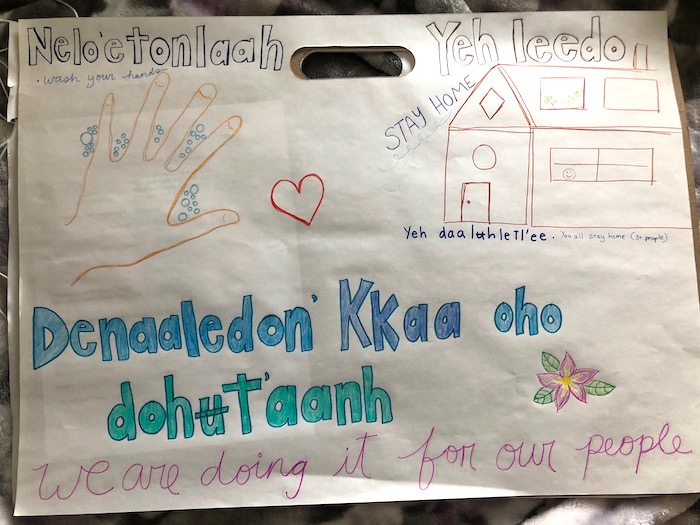 Nelo'etonlaah
Yeh leedo
· wash your hands
STAY HOME
Yeh daalʉhletl'ee. · You all stay home (3+ people)
Denaaledon' Kkaa oho
dohʉt'aanh
we are doing it for our people